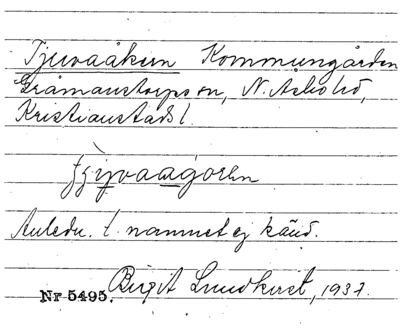 Tjuvaåkern Kommungården
Gråmanstorps sn, N. Åsbo hd,
Kristianstads l.
Anledn. t. namnet ej känd.
Birgit Lundkvist, 1937.
Nr 5495.